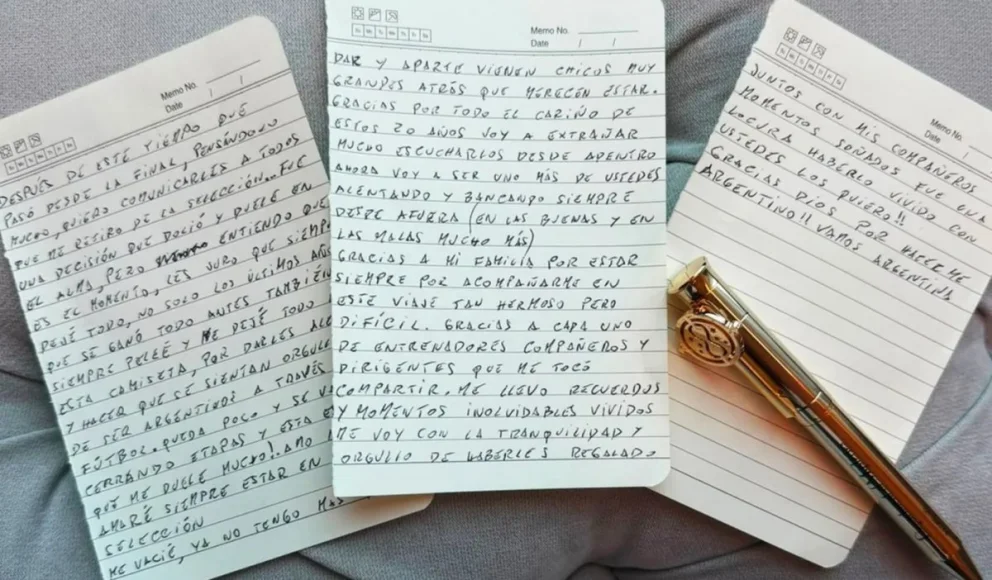 Memo No.
Date / /
DESPUÉS DE ESTE TIEMPO QUE
PASÓ DESDE LA FINAL, PENSÁNDOLO
MUCHO, QUIERO COMUNICARLES A TODOS
QUE ME RETIRO DE LA SELECCIÓN... FUE
UNA DECISIÓN QUE DOLIÓ Y DUELE EN
EL ALMA, PERO ENTIENDO QUE
ES EL MOMENTO, LES JURO QUE SIEMP
DEJÉ TODO, NO SOLO LOS ÚLTIMOS AÑOS
QUE SE GANÓ TODO ANTES TAMBIÉN
SIEMPRE PELEÉ Y ME DEJÉ TODO
ESTA CAMISETA, POR DARLES ALE
Y HACER QUE SE SIENTAN ORGULL
DE SER ARGENTINOS A TRAVÉS
FÚTBOL. QUEDA POCO Y SE V
CERRANDO ETAPAS Y ESTA
QUE ME DUELE MUCHO!. AMO
AMARÉ SIEMPRE ESTAR EN
SELECCIÓN
ME VACIÉ, YA NO TENGO MÁS
Memo No.
Date / /
DAR Y APARTE VIENEN CHICOS MUY
GRANDES ATRÁS QUE MERECEN ESTAR.
GRACIAS POR TODO EL CARIÑO DE
ESTOS 20 AÑOS VOY A EXTRAÑAR
MUCHO ESCUCHARLOS DESDE ADENTRO
AHORA VOY A SER UNO MÁS DE USTEDES
ALENTANDO Y BANCANDO SIEMPRE
DESDE AFUERA (EN LAS BUENAS Y EN
LAS MALAS MUCHO MÁS)
GRACIAS A MI FAMILIA POR ESTAR
SIEMPRE POR ACOMPAÑARME EN
ESTE VIAJE TAN HERMOSO PERO
DIFÍCIL. GRACIAS A CADA UNO
DE ENTRENADORES COMPAÑEROS Y
DIRIGENTES QUE ME TOCÓ
COMPARTIR. ME LLEVO RECUERDOS
Y MOMENTOS INOLVIDABLES VIVIDOS
ME VOY CON LA TRANQUILIDAD Y
ORGULLO DE HABERLES REGALADO
Memo No.
Date / /
JUNTOS CON MIS COMPAÑEROS
MOMENTOS SOÑADOS FUE UNA
LOCURA HABERLO VIVIDO CON
USTEDES LOS QUIERO!!
GRACIAS DIOS POR HACERME
ARGENTINO!! VAMOS ARGENTINA